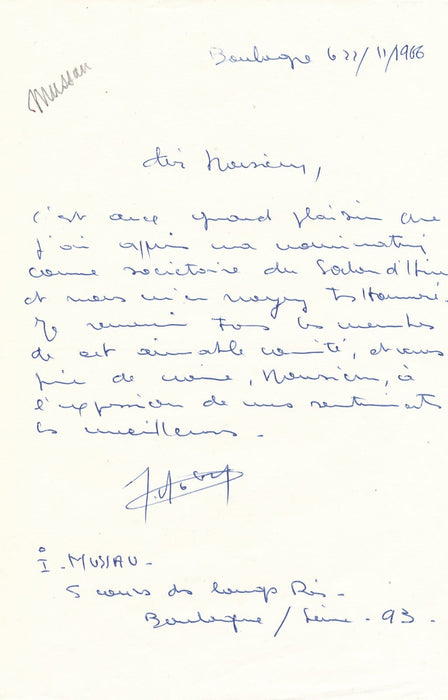 Mussau
Boulogne le 22/11/1966
Cher Monsieur,
c'est avec grand plaisir que
j'ai appris ma nomination
comme sociétaire du Salon d'Hiver
et vous m'en voyez très Honoré.
Je remercie tous les membres
de cet aimable comité, et vous
prie de croire, Monsieur, à
l'expression de mes sentiments
les meilleurs.
MUSSAU -
5 cours des longs Prés -
Boulogne / Seine - 93 -